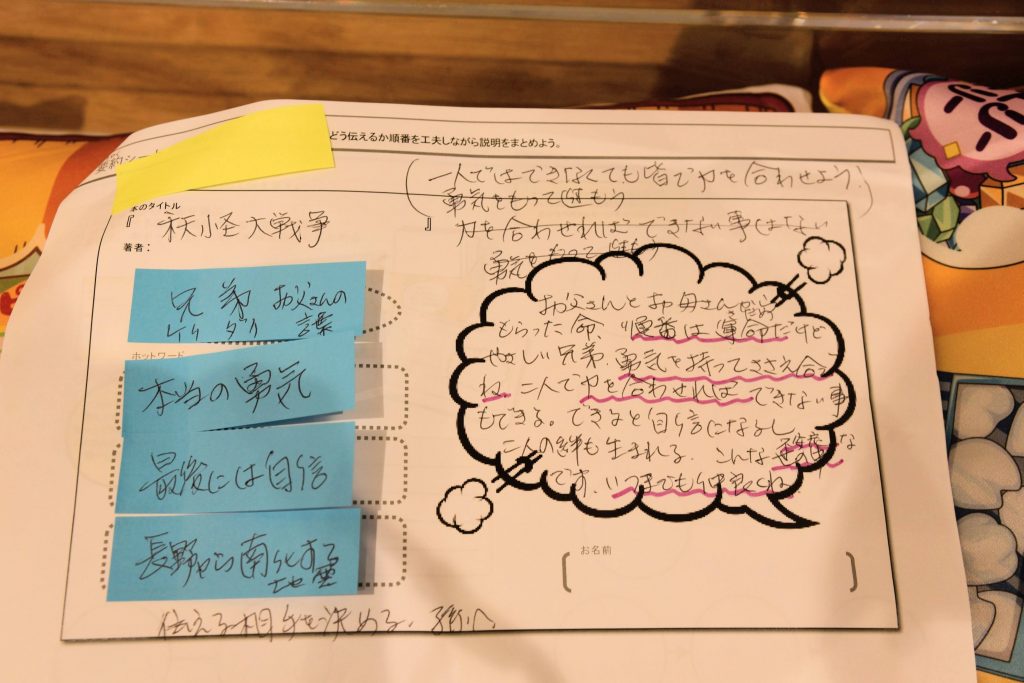 どう伝えるか順番を工夫しながら説明をまとめよう。
(一人ではできなくても皆で力を合わせよう。)
勇気をもって
力を合わせれば できない事はない
勇気をもって
本のタイトル
『 妖怪大戦争 』
著者:
兄弟 お父さんの
言葉
ホットワード
本当の勇気
最後には自信
長野から南化する
お父さんとお母さん
もらった命、順番は運命だけど
やさしい兄弟、勇気を持ってささえ合って
ね、二人で力を合わせれば できない事
もできる。できると自信になるし
二人の絆も生まれる、こんな な
です、いつまでも仲良くね
お名前
伝える相手を決める、孫へ